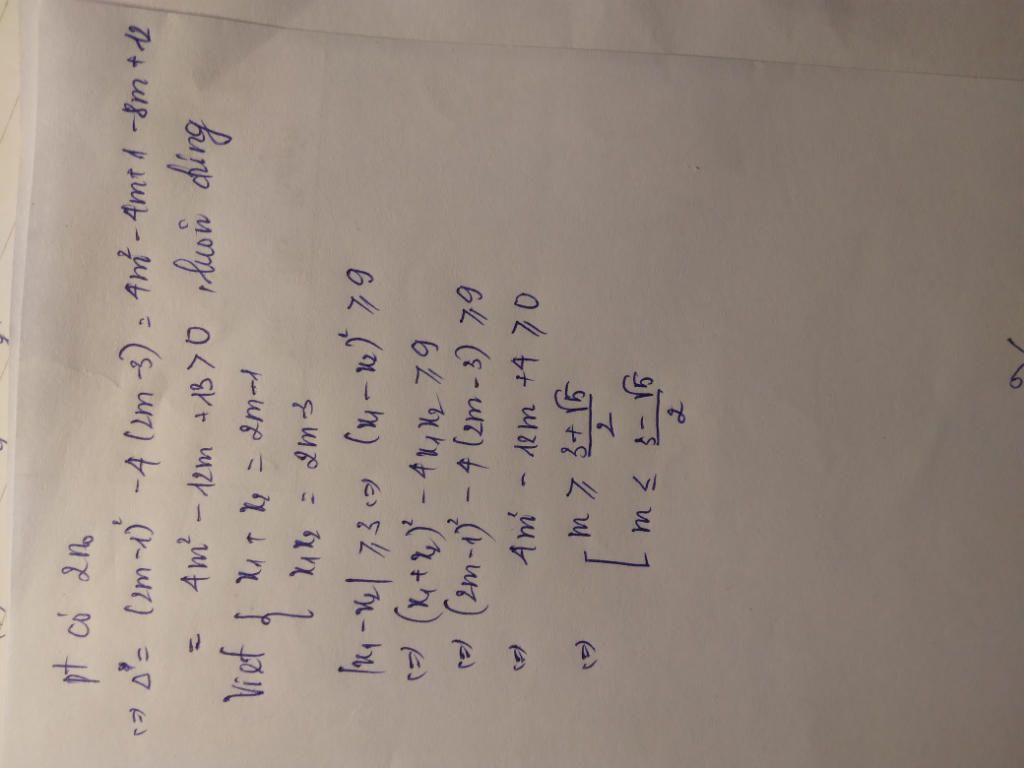 pt có 2n₀
(=) Δ = (2m-1)² - 4(2m-3) = 4m² - 4m + 1 - 8m + 12
= 4m² - 12m + 13 > 0, luôn đúng
Viet { x₁ + x₂ = 2m-1
x₁x₂ = 2m-3
|x₁-x₂| ⩾ 3 (=) (x₁ - x₂)² ⩾ 9
(=) (x₁+x₂)² - 4x₁x₂ ⩾ 9
(=) (2m-1)² - 4(2m-3) ⩾ 9
(=) 4m² - 12m + 4 ⩾ 0
(=) [ m ⩾ (3+√5)/2
m ≤ (3-√5)/2